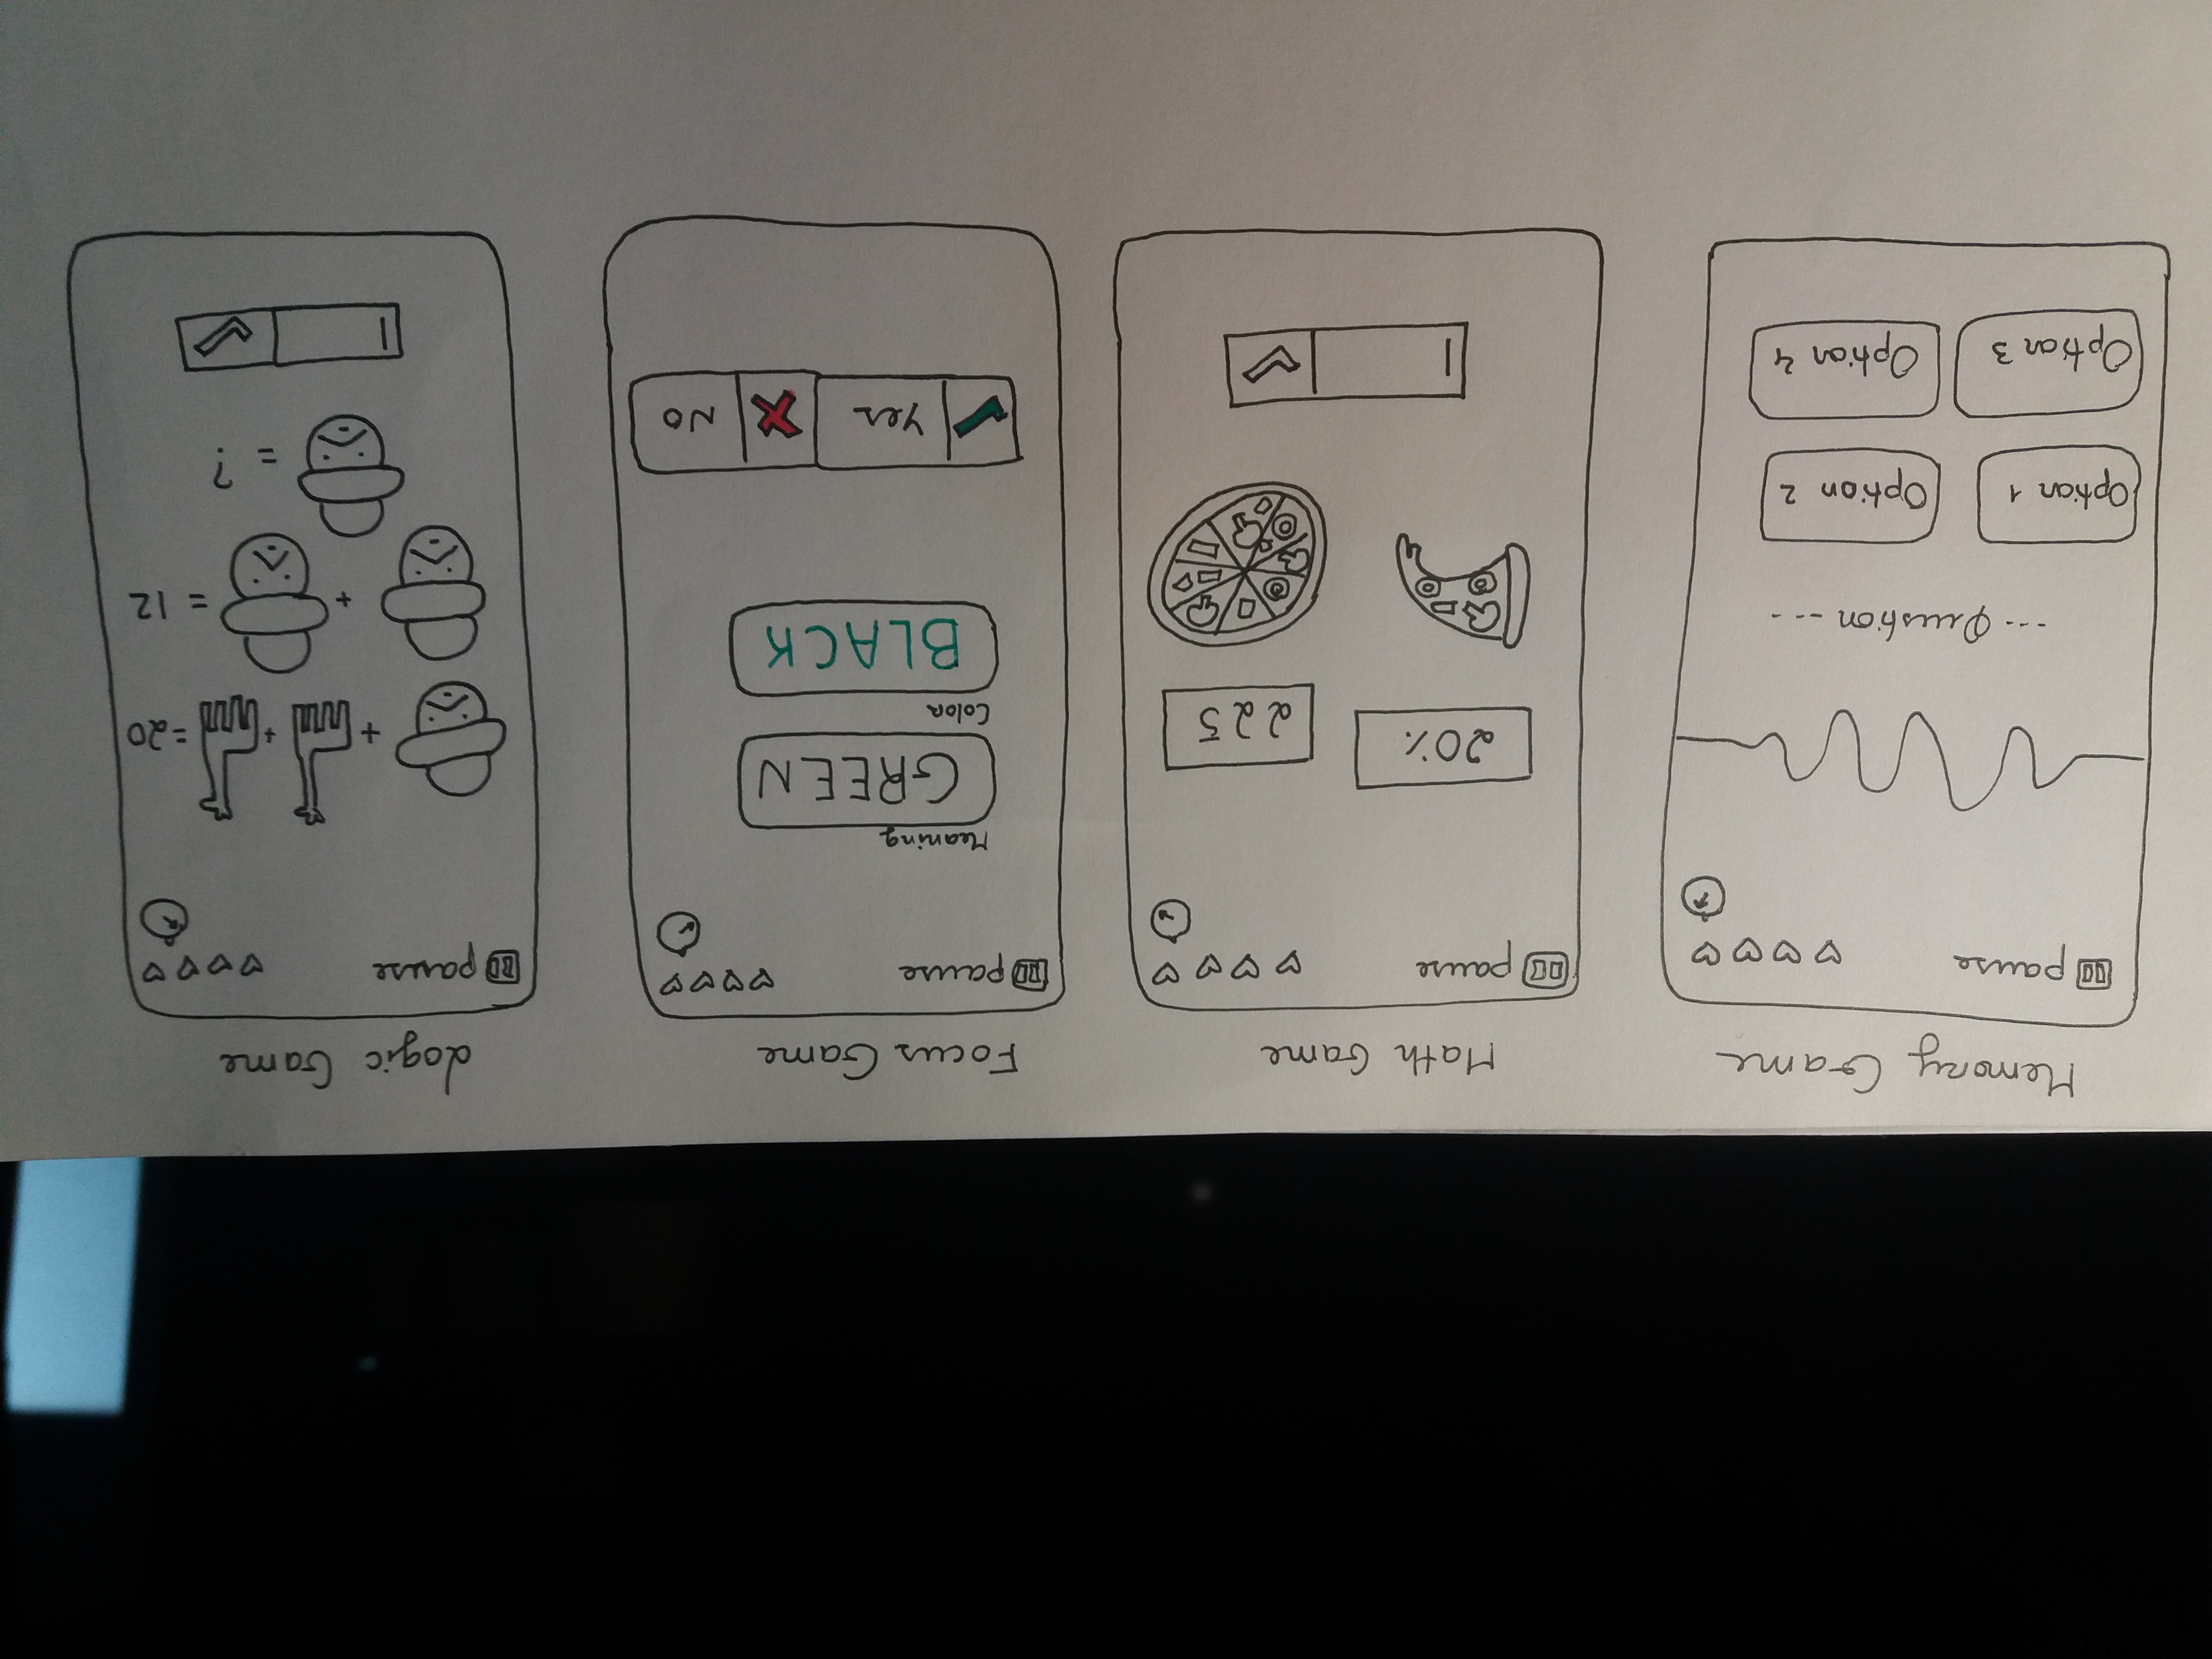 Memory Game
pause
--- Question ---
Option 1
Option 2
Option 3
Option 4
Math Game
pause
20%
225
Focus Game
pause
Meaning
GREEN
Color
BLACK
Yes
NO
Logic Game
pause
+ + =20
+ = 12
= ?